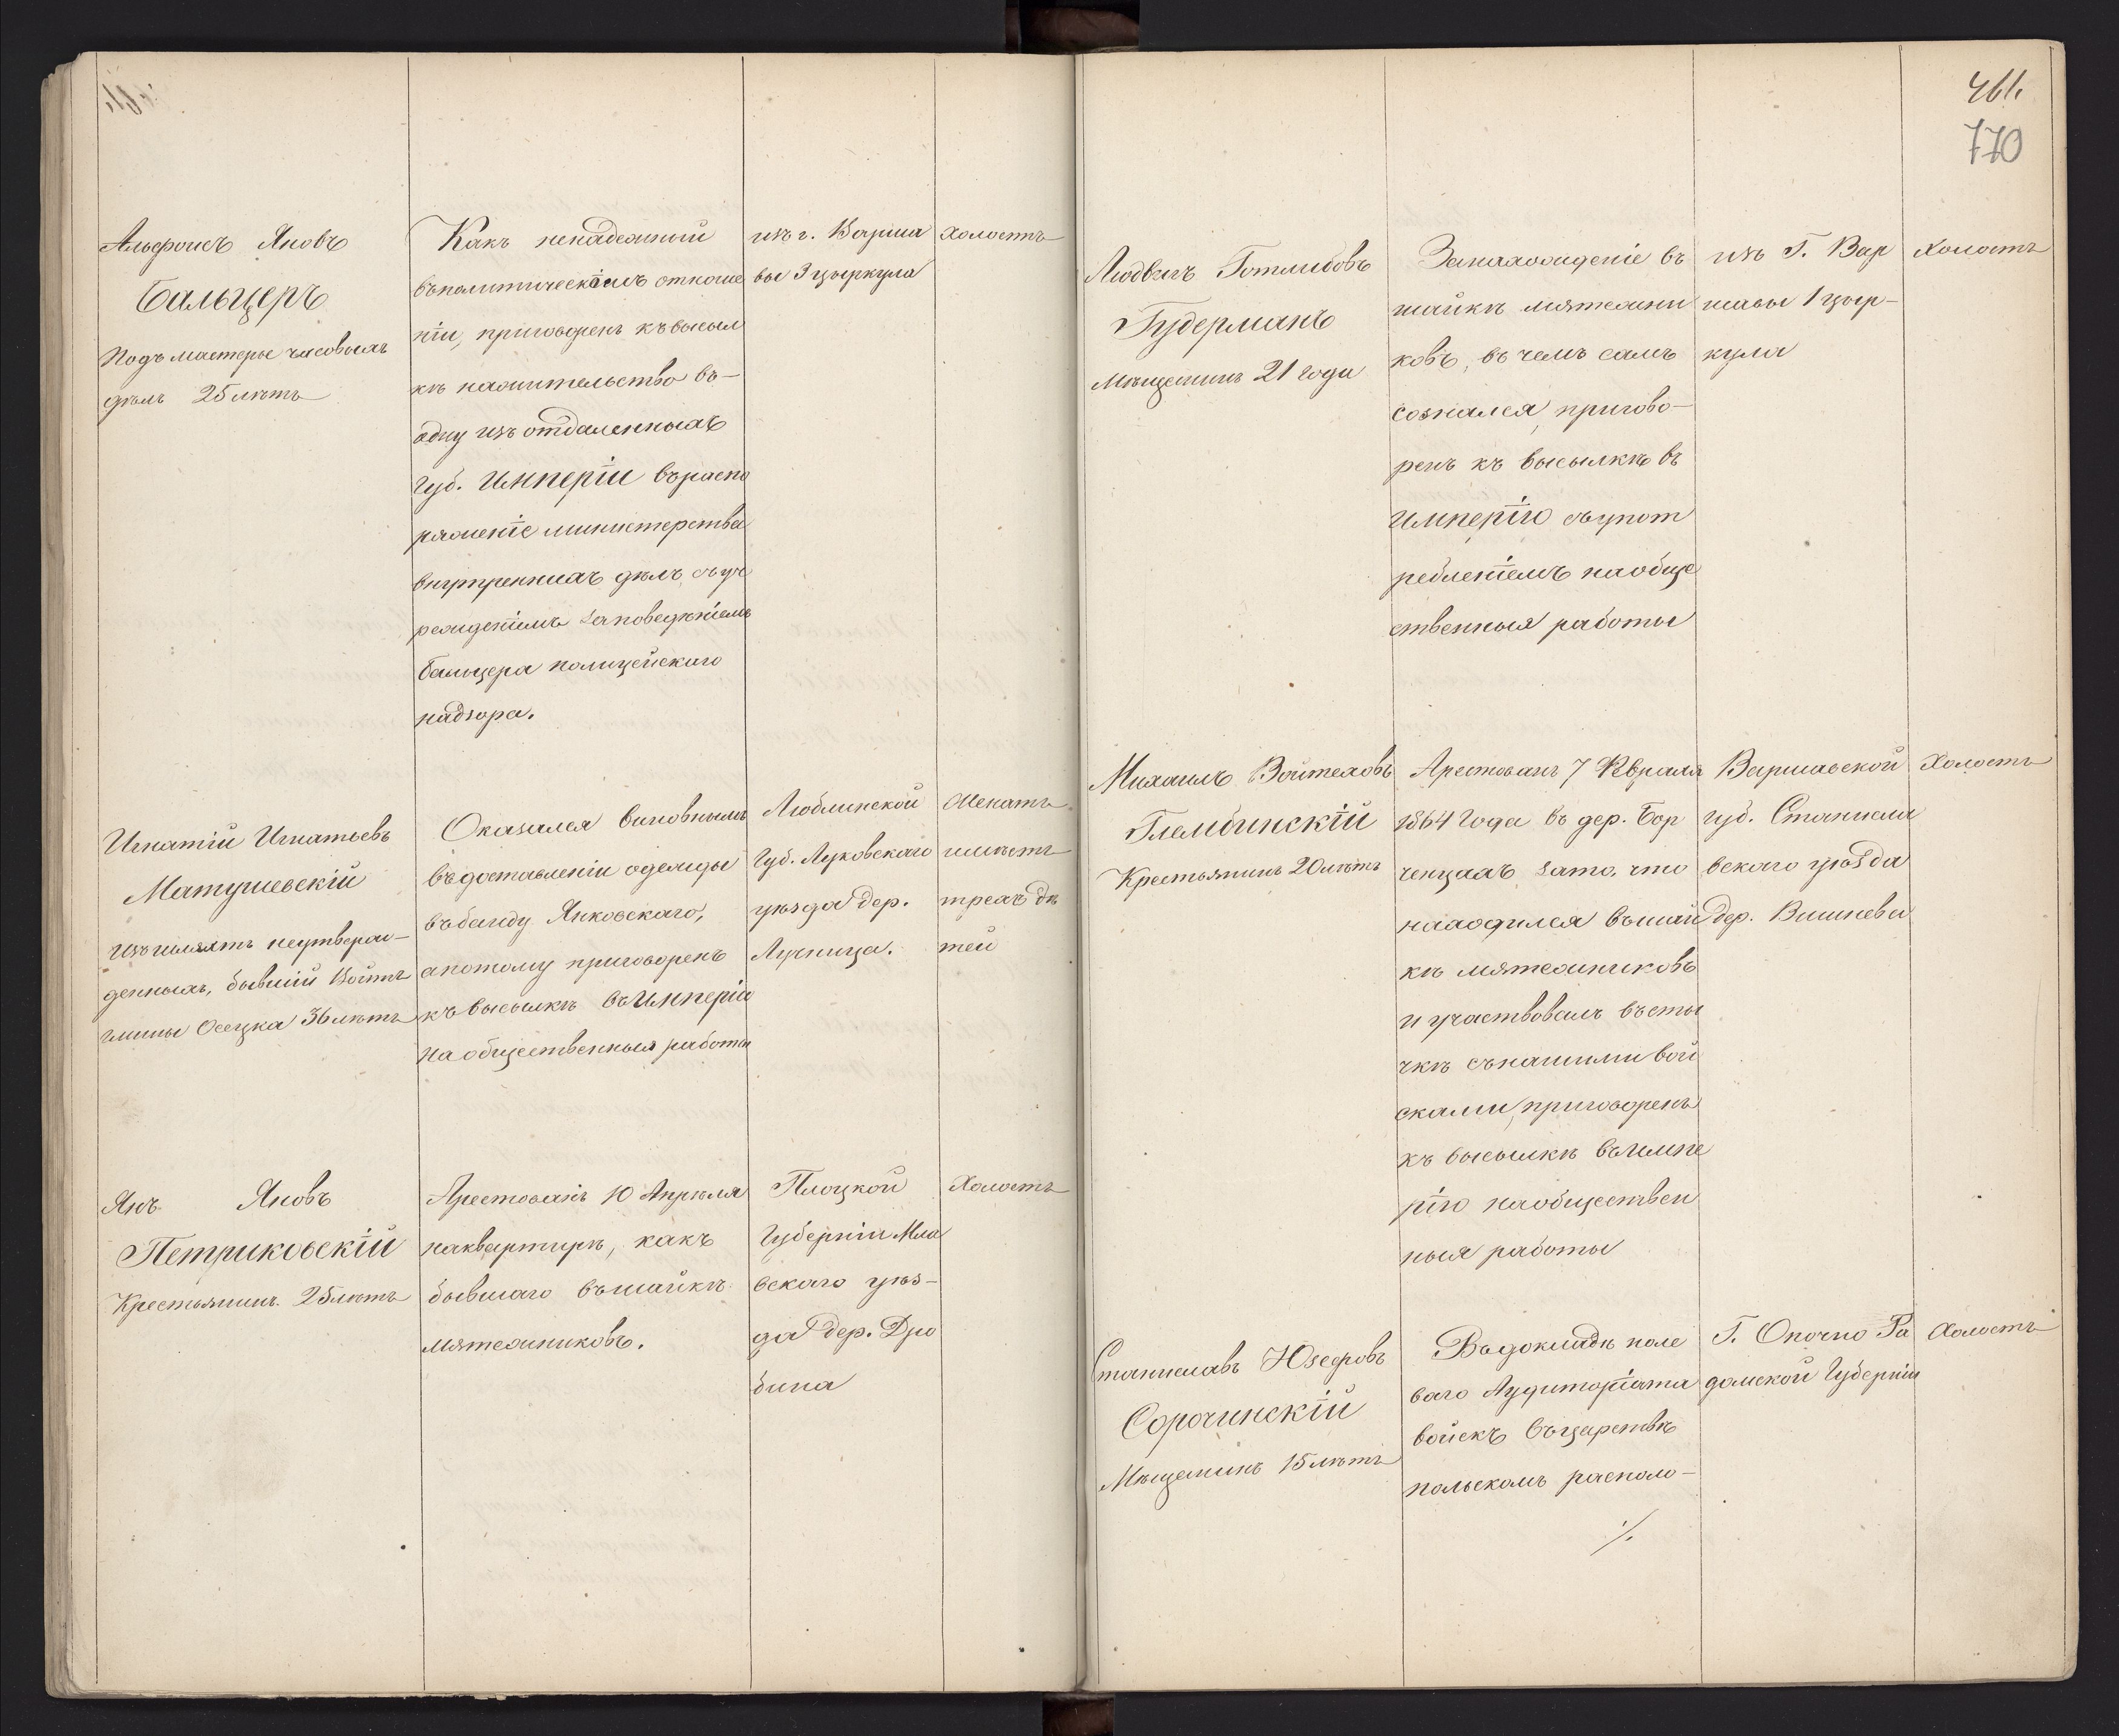 Альфонсъ Яновъ
Бальцеръ
Подъ мастерье часовыхъ
дѣлъ 25 лѣтъ
Какъ ненадежный
въ политическомъ отноше
ніи, приговоренъ къ высыл
кѣ на жительство въ-
одну изъ отдаленныхъ
Губ. Имперіи въ распо
ряженіе министерства
внутреннихъ дѣлъ, съ уч
режденіемъ за поведеніемъ
Бальцера полицейскаго
надзора.
изъ г. Варша
вы 3 цыркула
холостъ
Игнатій Игнатьевъ
Матушевскій
изъ шляхты неутверж-
денныхъ, бывшій Войтъ
гмины Осецка 36 лѣтъ
Оказался виновнымъ
въ доставленіи одежды
въ банду Янковскаго,
а потому приговоренъ
къ высылкѣ въ Имперію
на общественныя работы
Люблинской
Губ. Луковскаго
уѣзда дер.
Лучница.
Женатъ
имѣетъ
трехъ дѣ
тей
Янъ Яновъ
Петриковскій
Крестьянинъ. 25 лѣтъ
Арестованъ 10 Апрѣля
на квартирѣ, какъ
бывшаго въ шайкѣ
мятежниковъ.
Плоцкой
Губерніи Мла
вскаго уѣз-
да дер. Дро
бина
Холостъ
461.
770
Людвигъ Готлибовъ
Гудерманъ
Мѣщанинъ 21 года
За нахожденіе въ
шайкѣ мятежни
ковъ, въ чемъ самъ
сознался, пригово-
ренъ къ высылкѣ въ
Имперію съ упот
ребленіемъ на обще
ственныя работы
изъ Г. Вар
шавы 1 цыр-
кула
Холостъ
Михаилъ Войтеховъ
Глембинскій
Крестьянинъ 20 лѣтъ
Арестованъ 7 Февраля
1864 года въ дер. Бор
ченцахъ за то, что
находился въ шай
кѣ мятежниковъ
и участвовалъ въ сты
чкѣ съ нашими вой
сками, приговоренъ
къ высылкѣ въ Импе
рію на обществен
ныя работы
Варшавской
губ. Станисла
вскаго уѣзда
дер. Вишнева
Холостъ
Станиславъ Юзефовъ
Сорочинскій
Мѣщанинъ 15 лѣтъ
Въ докладѣ поле
ваго Аудиторіата
войскъ въ царствѣ
польскомъ располо-
Г. Опочно Ра
домской Губерніи
Холостъ
./.